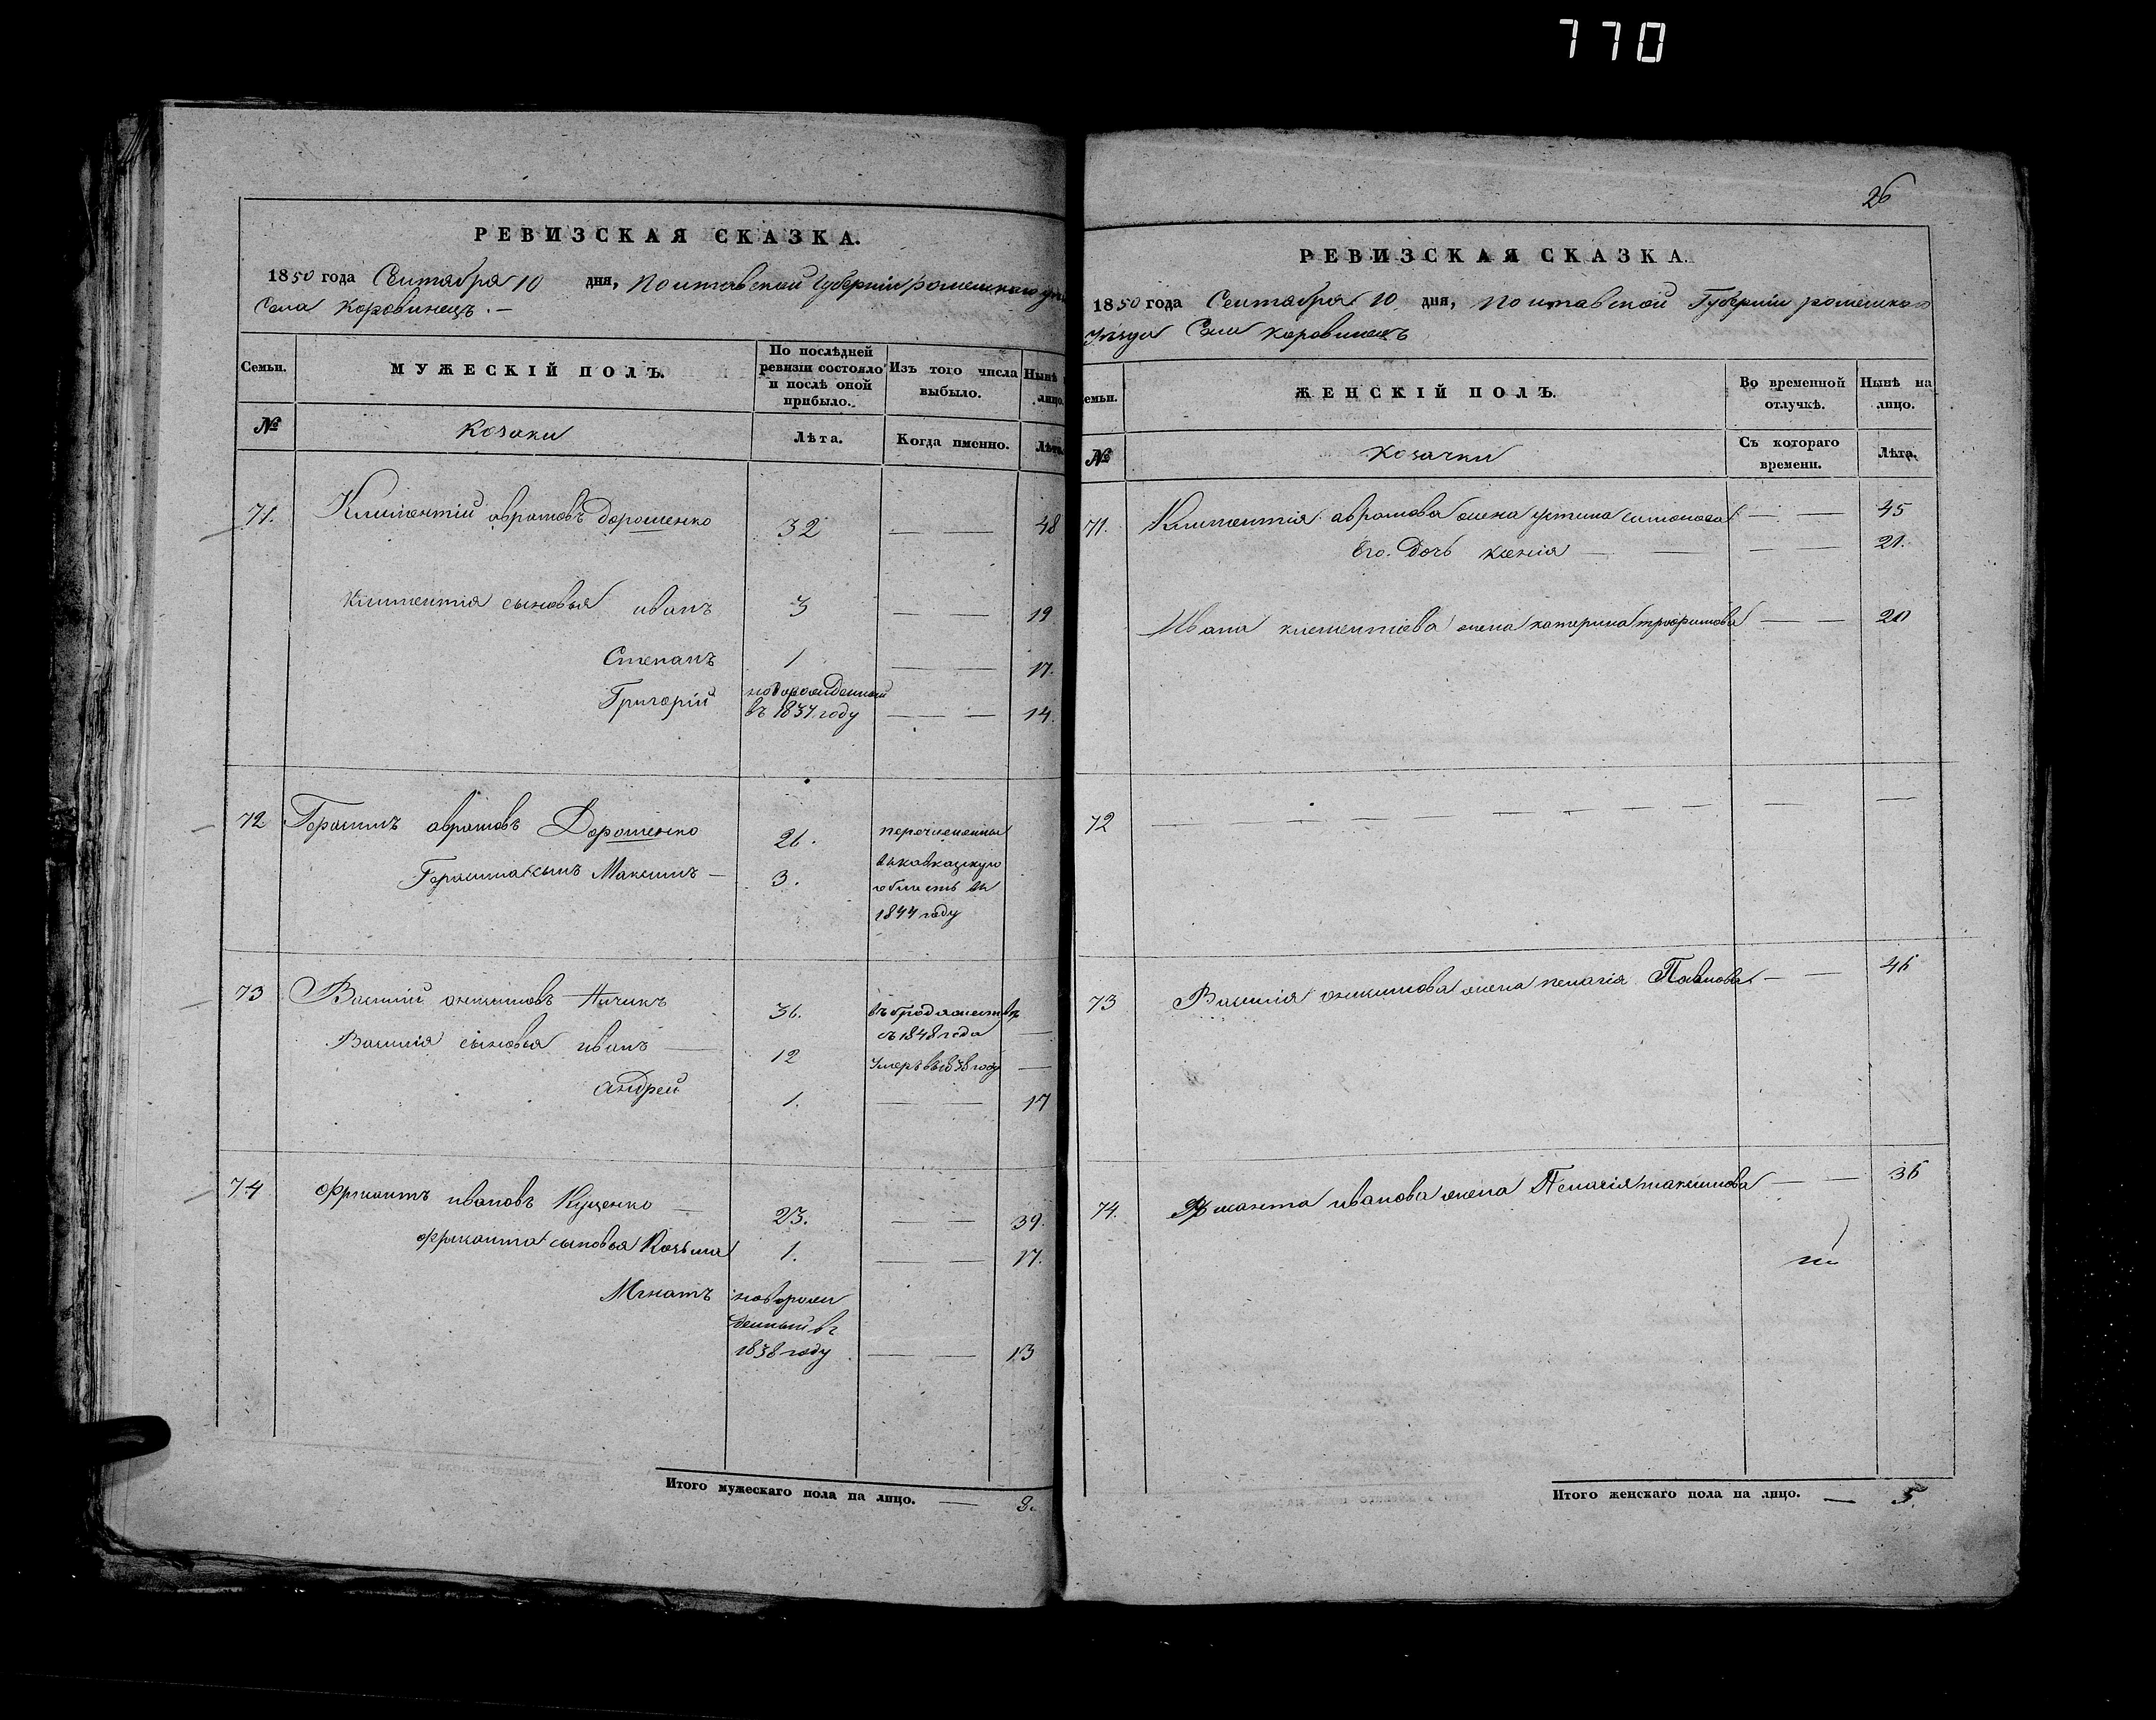 770
РЕВИЗСКАЯ СКАЗКА.
1850 года Сентября 10 дня, Полтавской Губерніи роменскаго
Села Коровинецъ. —
Семьи.
МУЖЕСКІЙ ПОЛЪ.
По послѣдней ревизіи состояло и послѣ оной прибыло.
Изъ того числа выбыло.
Нынѣ
лицо.
№
Козаки
Лѣта.
Когда именно.
Лѣта.
71. Климентій аврамовъ Дорошенко 32 — — 48
Климентія сыновья иванъ 3 — — 19
Степанъ 1 — — 17.
Григорій новорожденный
въ 1837 году — — — 14.
72. Герасимъ аврамовъ Дорошенко 26. перечислены
Герасима сынъ Максимъ — 3. вкавказскую
область въ
1844 году
73 Василій онисимовъ 36. въ бродяжествѣ
съ 1848 года —
Василія сыновья иванъ — 12 умеръ въ 1838 году —
андрей 1. — — 17
74 ивановъ Куценко — 23. — — 39.
сыновья Козьма 1. — — 17.
Игнатъ новорож
денный въ
1838 году — — 13
Итого мужескаго пола на лицо. — 8.
26
РЕВИЗСКАЯ СКАЗКА.
1850 года Сентября 10 дня, Полтавской Губерніи роменскаго
Уѣзда Села Коровинецъ
емьи.
ЖЕНСКІЙ ПОЛЪ.
Во временной отлучкѣ.
Нынѣ на лицо.
№
Козачки
Съ котораго времени.
Лѣта.
71. Климентія аврамова жена устина симонова — — 45
Его. Дочь ксенія — — — — 21.
Ивана климентіева жена катерина трофимова — — 20
72 — — — — — — — — — — —
73 Василія онисимова жена пелагія Павлова — — 46
74. иванова жена Пелагія максимова — — 36
Итого женскаго пола на лицо. — 5.